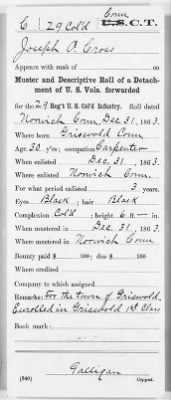 C | 29 Col'd | Conn
U.S.C.T.
Joseph O. Cross
Appears with rank of
Muster and Descriptive Roll of a Detach-
ment of U. S. Vols. forwarded
for the 29 Reg't U. S. Col'd Infantry. Roll dated
Norwich Conn, Dec 31, 1863.
Where born Griswold Conn
Age 30 y'rs; occupation Carpenter
When enlisted Dec 31, 1863.
Where enlisted Norwich Conn.
For what period enlisted 3 years.
Eyes Black; hair Black
Complexion Col'd; height 6 ft — in.
When mustered in Dec 31, 1863.
Where mustered in Norwich Conn
Bounty paid $ 100; due $ 100
Where credited
Company to which assigned
Remarks: For the town of Griswold.
Enrolled in Griswold 1st Class
Book mark:
Galligan
(340) Copyist.